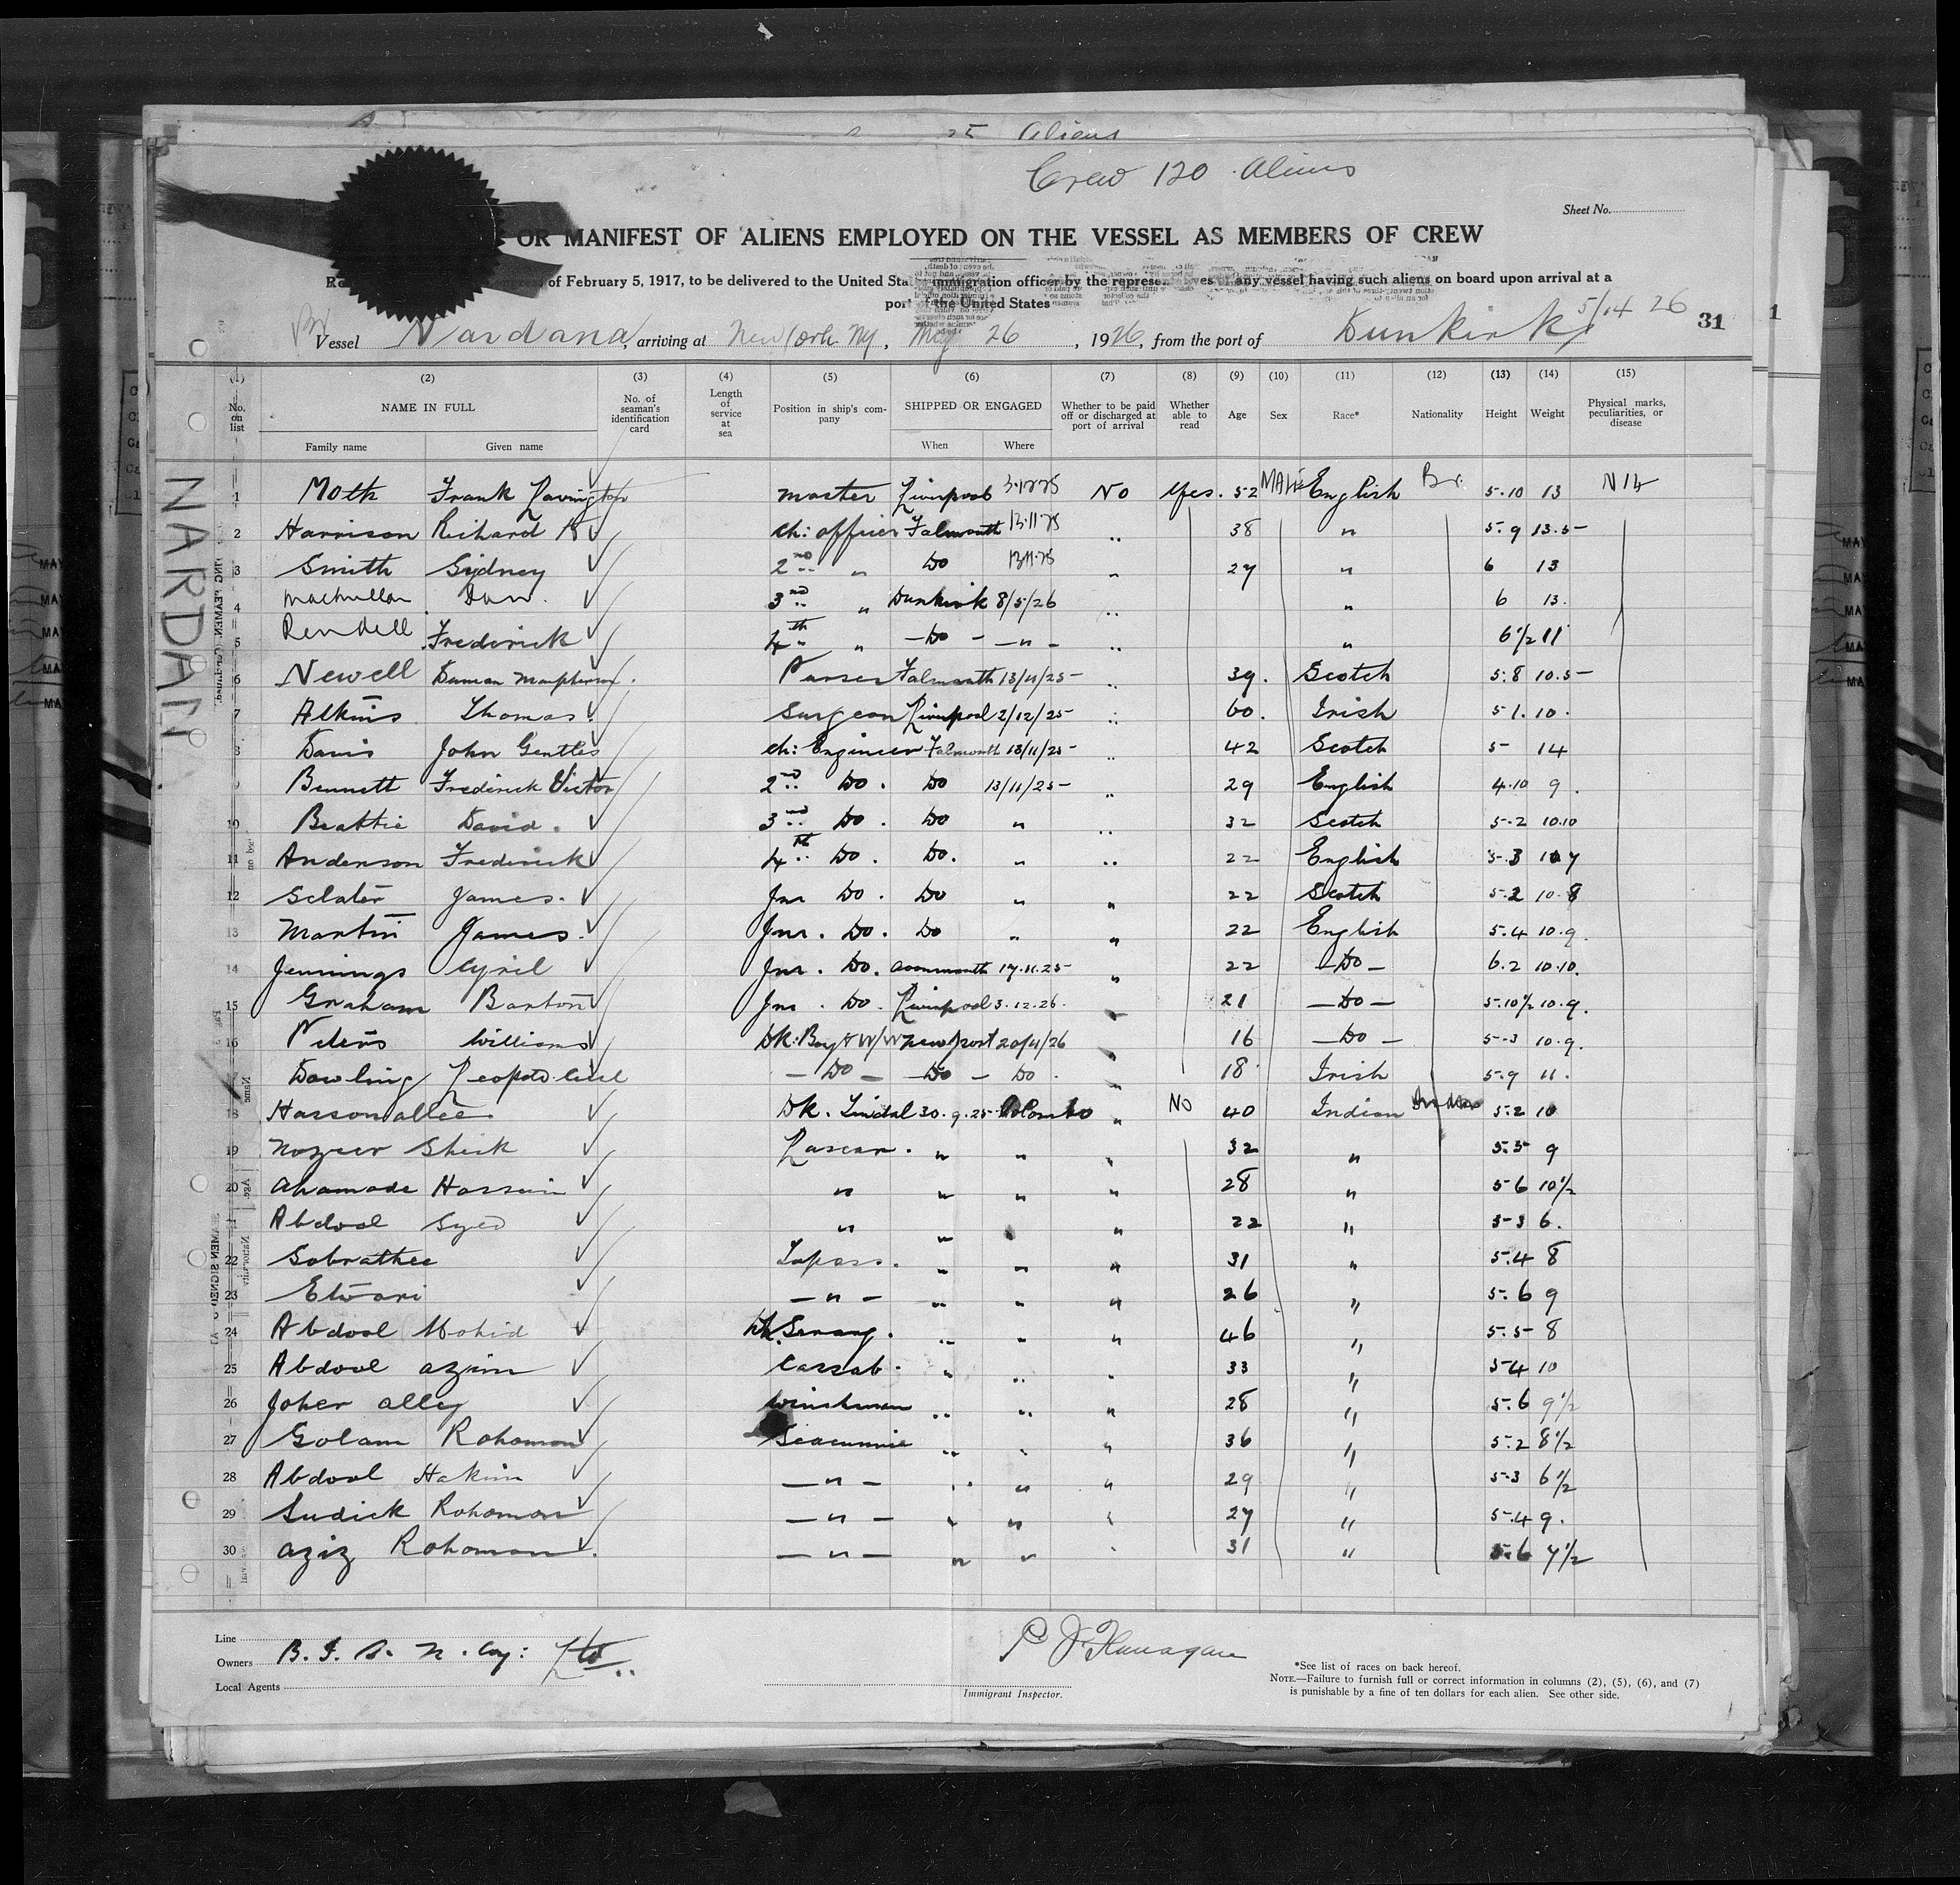 Aliens
Crew 120 Aliens
Sheet No.
OR MANIFEST OF ALIENS EMPLOYED ON THE VESSEL AS MEMBERS OF CREW
of February 5, 1917, to be delivered to the United States immigration officer by the representatives of any vessel having such aliens on board upon arrival at a
port of the United States
Vessel Nardana, arriving at New York Ny, May 26, 1926, from the port of Dunkirk 5/14 26
31
(1) (2) (3) (4) (5) (6) (7) (8) (9) (10) (11) (12) (13) (14) (15)
No. on list NAME IN FULL No. of seaman's identification card Length of service at sea Position in ship's company SHIPPED OR ENGAGED Whether to be paid off or discharged at port of arrival Whether able to read Age Sex Race* Nationality Height Weight Physical marks, peculiarities, or disease
Family name Given name When Where
NARDANA
1 Moth Frank Lavington master Liverpool No Yes. 52 MALE English Br. 5.10 13 Nil
2 Harrison Richard ch: officer Falmouth 13.11.25 " 38 " 5.9 13.5
3 Smith Sydney 2nd " Do 13.11.25 " 27 " 6 13
4 Macmillan Dan. 3rd " Dunkirk 8/5/26 " " 6 13.
5 Rendell Frederick 4th " - Do - - " - " " 6½ 11
6 Newell Duncan Purser Falmouth 13/11/25 " 39. Scotch 5.8 10.5
7 Atkins Thomas. Surgeon Liverpool 2/12/25 " 60. Irish 5 1. 10.
8 Davis John Gentles ch: Engineer Falmouth 13/11/25 " 42 Scotch 5 14
9 Bennett Frederick Victor 2nd Do. Do 13/11/25 " 29 English 4.10 9.
10 Beattie David. 3rd Do. Do " " 32 Scotch 5.2 10.10
11 Anderson Frederick 4th Do. Do. " " 22 English 5.3 10 7
12 Sclater James. Jnr Do. Do " " 22 Scotch 5.2 10.8
13 Martin James. Jnr. Do. Do " " 22 English 5.4 10.9.
14 Jennings Cyril Jnr. Do. Avonmouth 17.11.25 " 22 - Do - 6.2 10.10.
15 Graham Barton Jnr. Do. Liverpool 3.12.26. " 21 - Do - 5.10½ 10.9.
16 Peters Williams Dk: Boy Newport 20/4/26 " 16 - Do - 5.3 10.9.
17 Dowling Leopold - Do - - Do - Do. " 18 Irish 5.9 11.
18 Hassonallee Dk. Tindal 30.9.25 Colombo " No 40 Indian Indian 5.2 10
19 Nozeer Sheik Lascar. " " " 32 " 5.5 9
20 Ahamode Hossein " " " " 28 " 5 6 10½
21 Abdool Syed " " " 22 " 5 3 6.
22 Sobrathee Topass. " " " 31 " 5.4 8
23 Etwari - " - " " " 26 " 5.6 9
24 Abdool Mohid Dk. Serang. " " " 46 " 5.5 8
25 Abdool azim Cassab. " " " 33 " 5 4 10
26 Joher alley Winchman " " " 28 " 5.6 9½
27 Golam Rohomon Seacunnie " " " 36 " 5.2 8½
28 Abdool Hakim - " - " " " 29 " 5.3 6½
29 Sudick Rohomon - " - " " " 27 " 5.4 9.
30 aziz Rohomon. - " - " " " 31 " 5.6 7½
Line
Owners B. I. S. N. Coy: Ltd
Local Agents
P J Flanagan
Immigrant Inspector.
*See list of races on back hereof.
NOTE.—Failure to furnish full or correct information in columns (2), (5), (6), and (7)
is punishable by a fine of ten dollars for each alien. See other side.